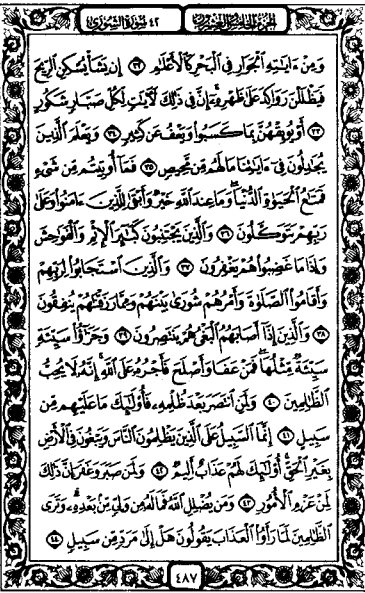 الجزء الخامس والعشرون
٤٢ سورة الشورى
وَمِنْ ءَايَٰتِهِ ٱلْجَوَارِ فِي ٱلْبَحْرِ كَٱلْأَعْلَٰمِ ٣٢ إِن يَشَأْ يُسْكِنِ ٱلرِّيحَ
فَيَظْلَلْنَ رَوَاكِدَ عَلَىٰ ظَهْرِهِۦٓ إِنَّ فِي ذَٰلِكَ لَءَايَٰتٍ لِّكُلِّ صَبَّارٍ شَكُورٍ
٣٣ أَوْ يُوبِقْهُنَّ بِمَا كَسَبُوا۟ وَيَعْفُ عَن كَثِيرٍ ٣٤ وَيَعْلَمَ ٱلَّذِينَ
يُجَٰدِلُونَ فِيٓ ءَايَٰتِنَا مَا لَهُم مِّن مَّحِيصٍ ٣٥ فَمَآ أُوتِيتُم مِّن شَيْءٍ
فَمَتَٰعُ ٱلْحَيَوٰةِ ٱلدُّنْيَا وَمَا عِندَ ٱللَّهِ خَيْرٌ وَأَبْقَىٰ لِلَّذِينَ ءَامَنُوا۟ وَعَلَىٰ
رَبِّهِمْ يَتَوَكَّلُونَ ٣٦ وَٱلَّذِينَ يَجْتَنِبُونَ كَبَٰٓئِرَ ٱلْإِثْمِ وَٱلْفَوَٰحِشَ
وَإِذَا مَا غَضِبُوا۟ هُمْ يَغْفِرُونَ ٣٧ وَٱلَّذِينَ ٱسْتَجَابُوا۟ لِرَبِّهِمْ
وَأَقَامُوا۟ ٱلصَّلَوٰةَ وَأَمْرُهُمْ شُورَىٰ بَيْنَهُمْ وَمِمَّا رَزَقْنَٰهُمْ يُنفِقُونَ
٣٨ وَٱلَّذِينَ إِذَآ أَصَابَهُمُ ٱلْبَغْيُ هُمْ يَنتَصِرُونَ ٣٩ وَجَزَٰٓؤُا۟ سَيِّئَةٍ
سَيِّئَةٌ مِّثْلُهَا فَمَنْ عَفَا وَأَصْلَحَ فَأَجْرُهُۥ عَلَى ٱللَّهِ إِنَّهُۥ لَا يُحِبُّ
ٱلظَّٰلِمِينَ ٤٠ وَلَمَنِ ٱنتَصَرَ بَعْدَ ظُلْمِهِۦ فَأُو۟لَٰٓئِكَ مَا عَلَيْهِم مِّن
سَبِيلٍ ٤١ إِنَّمَا ٱلسَّبِيلُ عَلَى ٱلَّذِينَ يَظْلِمُونَ ٱلنَّاسَ وَيَبْغُونَ فِي ٱلْأَرْضِ
بِغَيْرِ ٱلْحَقِّ أُو۟لَٰٓئِكَ لَهُمْ عَذَابٌ أَلِيمٌ ٤٢ وَلَمَن صَبَرَ وَغَفَرَ إِنَّ ذَٰلِكَ
لَمِنْ عَزْمِ ٱلْأُمُورِ ٤٣ وَمَن يُضْلِلِ ٱللَّهُ فَمَا لَهُۥ مِن وَلِيٍّ مِّنۢ بَعْدِهِۦ وَتَرَى
ٱلظَّٰلِمِينَ لَمَّا رَأَوُا۟ ٱلْعَذَابَ يَقُولُونَ هَلْ إِلَىٰ مَرَدٍّ مِّن سَبِيلٍ ٤٤
٤٨٧